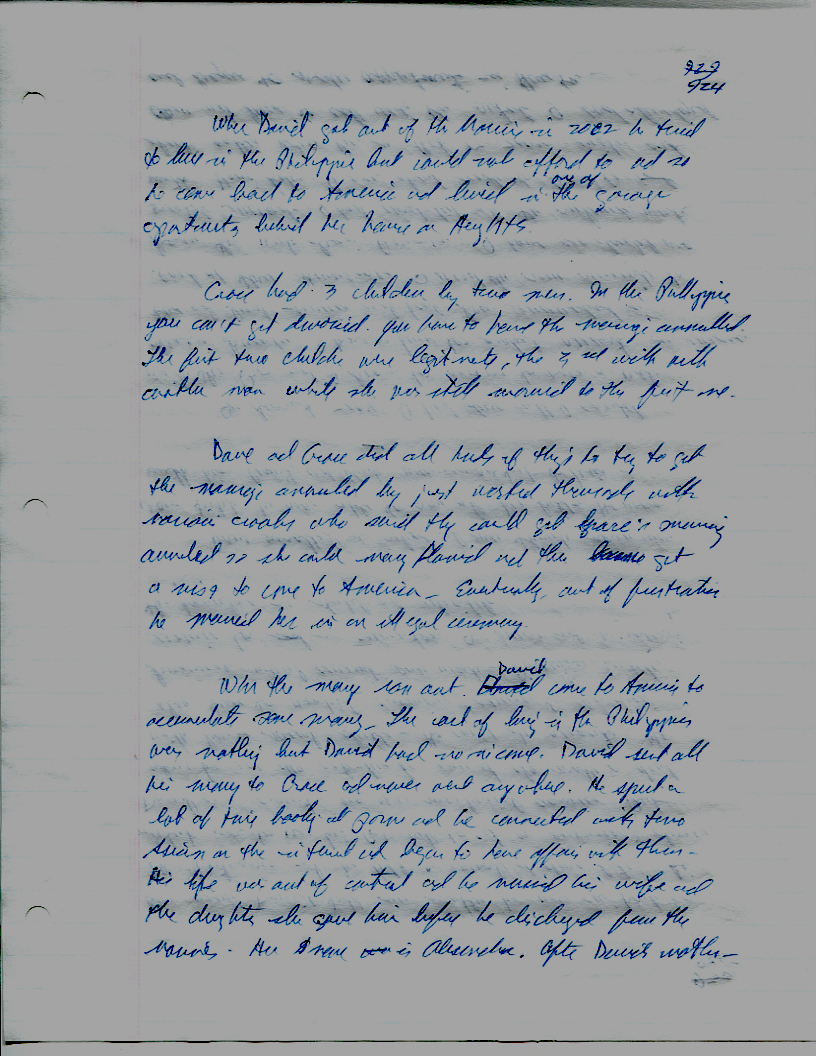 924
When David got out of the Marines in 2002 he tried
to live in the Philippine but could not afford to ad so
he come back to America ad lived in one of the garage
apartments behind her home on Heights
Grace had 3 children by two men. In the Phillippine
you can't get divorced. you have to have the marriage annulled.
The first two childre were legitimate, the 3 rd with with
another man while she was still married to the first one.
Dave ad Grace did all kinds of things to try to get
the marriage annulled by just wasted thousands with
various crooks who said they could get Grace's marriage
annulled so she could marry David ad then get
a visa to come to America - Eventually out of frustration
he married her in an illegal ceremony.
When the money ran out. David come to America to
accumulate some money. The cost of living in the Philippines
was nothing but David had no income. David sent all
his money to Grace ad never went anywhere. He spent a
lot of time looking at porn ad he connected with two
Asian on the internet ad began to have affairs with them.
His life was out of control ad he missed his wife ad
the daughter she gave him before he discharged from the
marines. Her name is Alexandra. After David's mother